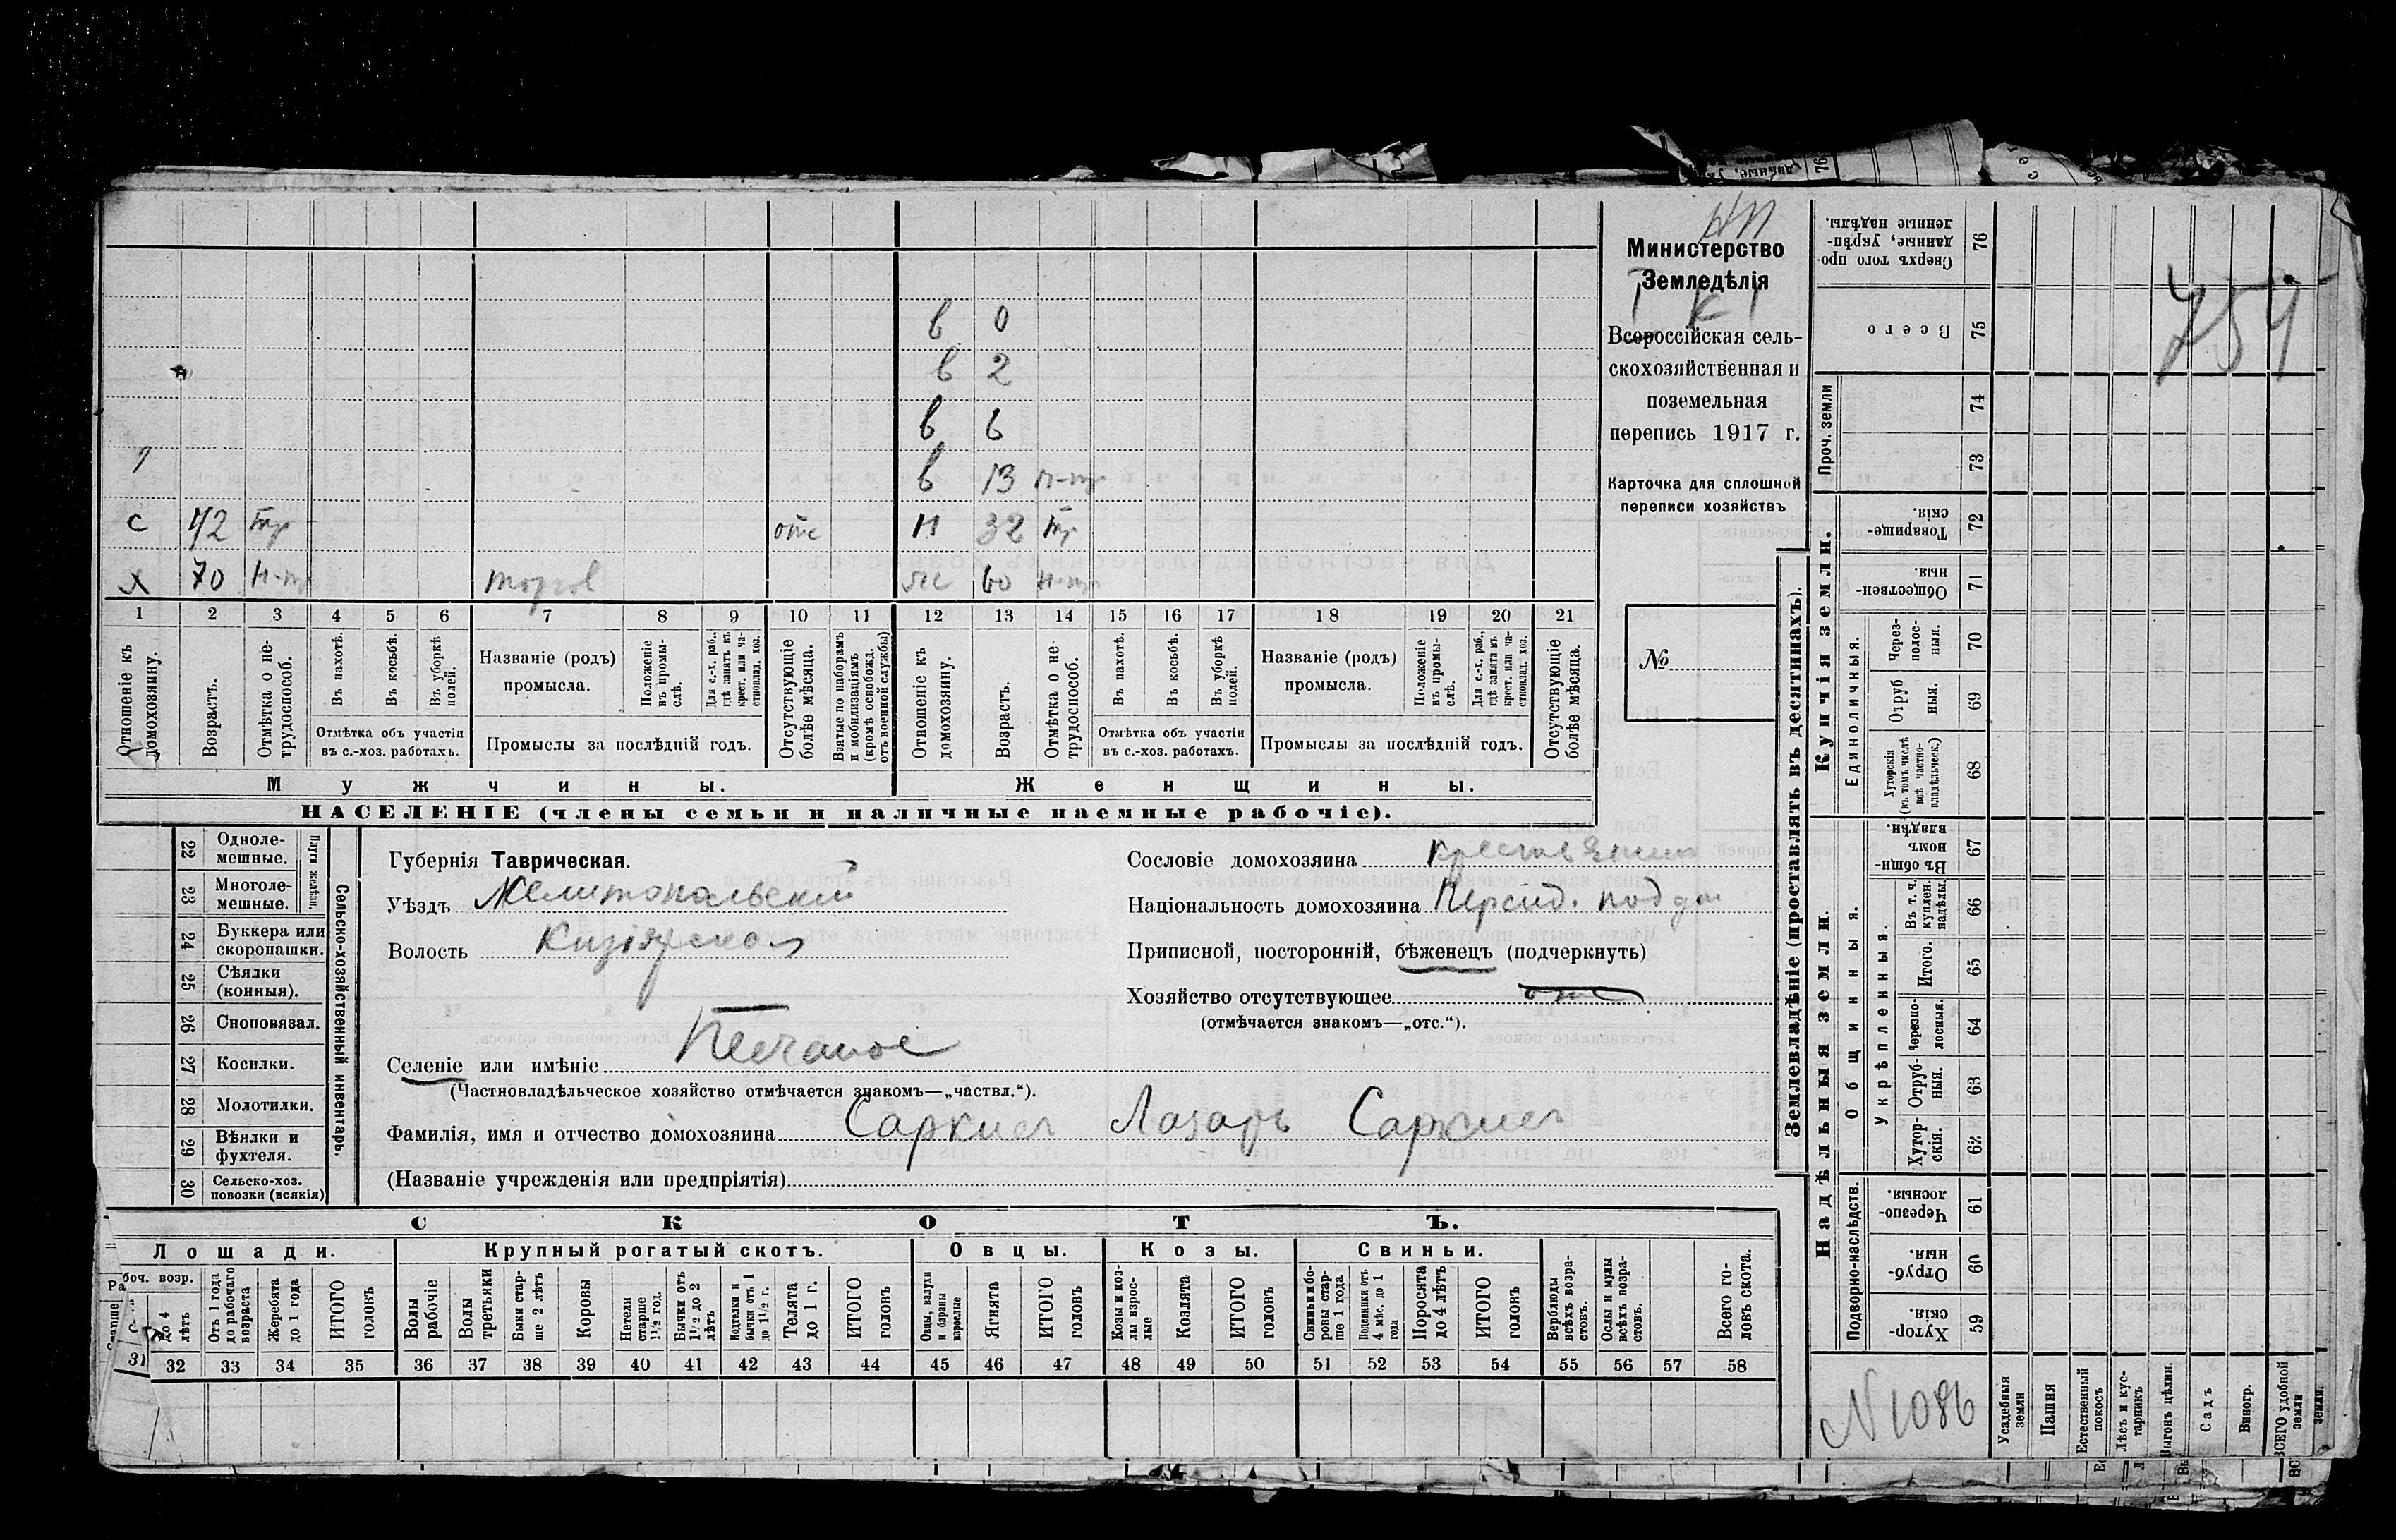 в 0
в 2
в 6
в 13 п-тр
с 42 тр отс н 32 тр
х 70 н-тр торгов ж 60 н-тр
1 2 3 4 5 6 7 8 9 10 11 12 13 14 15 16 17 18 19 20 21
Отношеніе къ домохозяину.
Возрастъ.
Отмѣтка о не-трудоспособ.
Въ пахотѣ.
Въ косьбѣ.
Въ уборкѣ полей.
Отмѣтка объ участіи въ с.-хоз. работахъ.
Названіе (родъ) промысла.
Положеніе въ промы-слѣ.
Для с.-х. раб., гдѣ занятъ въ крест. или ча-стновлад. хоз.
Промыслы за послѣдній годъ.
Отсутствующіе болѣе мѣсяца.
Взятые по наборамъ и мобилизаціямъ (кромѣ освобожд. отъ военной службы)
Отношеніе къ домохозяину.
Возрастъ.
Отмѣтка о не трудоспособ.
Въ пахотѣ.
Въ косьбѣ.
Въ уборкѣ полей.
Отмѣтка объ участіи въ с.-хоз. работахъ.
Названіе (родъ) промысла.
Положеніе въ промы-слѣ.
Для с.-х. раб., гдѣ занята въ крест. или ча-стновлад. хоз.
Промыслы за послѣдній годъ.
Отсутствующіе болѣе мѣсяца.
Мужчины.
Женщины.
НАСЕЛЕНІЕ (члены семьи и наличные наемные рабочіе).
Министерство
Земледѣлія
Всероссійская сель-
скохозяйственная и
поземельная
перепись 1917 г.
Карточка для сплошной
переписи хозяйствъ
№
22 Одноле-мешные.
23 Многоле-мешные.
Плуги желѣзн.
24 Буккера или скоропашки.
25 Сѣялки (конныя).
26 Сноповязал.
27 Косилки.
28 Молотилки.
29 Вѣялки и фухтеля.
30 Сельско-хоз. повозки (всякія)
Сельско-хозяйственный инвентарь.
Губернія Таврическая.
Уѣздъ Мелитопольскій
Волость Кизіярская
Селеніе или имѣніе Песчаное
(Частновладѣльческое хозяйство отмѣчается знакомъ—„частвл.“).
Фамилія, имя и отчество домохозяина Саркисъ Лазарь Саркисъ
(Названіе учрежденія или предпріятія)
Сословіе домохозяина крестьянинъ
Національность домохозяина Персид. поддан
Приписной, посторонній, бѣженецъ (подчеркнуть)
Хозяйство отсутствующее отс
(отмѣчается знакомъ—„отс.“).
СКОТЪ.
Лошади.
Крупный рогатый скотъ.
Овцы.
Козы.
Свиньи.
Рабоч. возр.
до 4 лѣтъ
Отъ 1 года до рабочаго возраста
Жеребята до 1 года
ИТОГО головъ
Волы рабочіе
Волы третьяки
Быки стар-ше 2 лѣтъ
Коровы
Нетели старше 1½ год.
Бычки отъ 1½ до 2 лѣтъ
Подтелки и бычки отъ 1 до 1½ г.
Телята до 1 г.
ИТОГО головъ
Овцы, валухи и бараны взрослые
Ягнята
ИТОГО головъ
Козы и коз-лы взрос-лые
Козлята
ИТОГО головъ
Свиньи и бо-ровы стар-ше 1 года
Подсвинки отъ 4 мѣс. до 1 года
Поросята до 4 лѣтъ
ИТОГО головъ
Верблюды всѣхъ возра-стовъ.
Ослы и мулы всѣхъ возра-стовъ.
Всего го-ловъ скота.
31 32 33 34 35 36 37 38 39 40 41 42 43 44 45 46 47 48 49 50 51 52 53 54 55 56 57 58
Землевладѣніе (проставлять въ десятинахъ).
Купчія земли.
Надѣльныя земли.
76 Сверхъ того про-данные, укрѣп-ленные надѣлы.
75 Всего
Проч. земли
74
73
72 Товарище-скія.
71 Обществен-ныя.
Единоличныя.
70 Через-полос-ныя.
69 Отруб ныя.
68 Хуторскія (въ томъ числѣ всѣ частно-владѣльческ.)
67 Въ общин-номъ владѣн.
Общинныя.
Укрѣпленныя.
66 Въ т. ч. куплен. надѣлы.
65 Итого.
64 Черезпо-лосныя.
63 Отруб-ныя.
62 Хутор-скія.
Подворно-наслѣдств.
61 Черезпо-лосныя.
60 Отруб-ныя.
59 Хутор-скія.
Усадебныя земли
Пашня
Естественный покосъ
Лѣсъ и кус-тарникъ
Выгонъ цѣлин.
Садъ
Виногр.
ВСЕГО удобной земли
751
N 1086